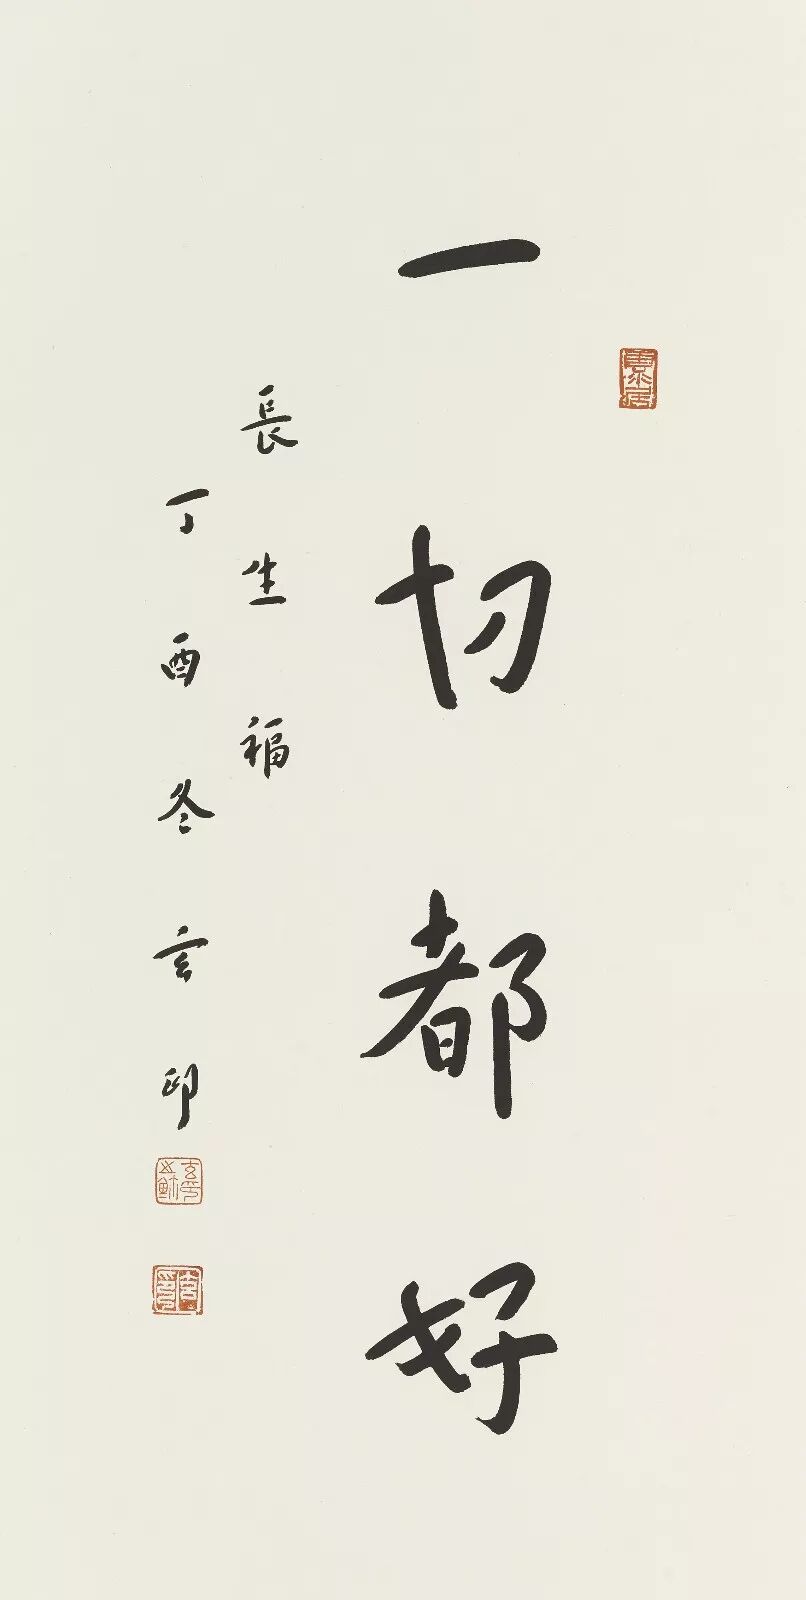 一切都好
長生福
丁酉冬玄印